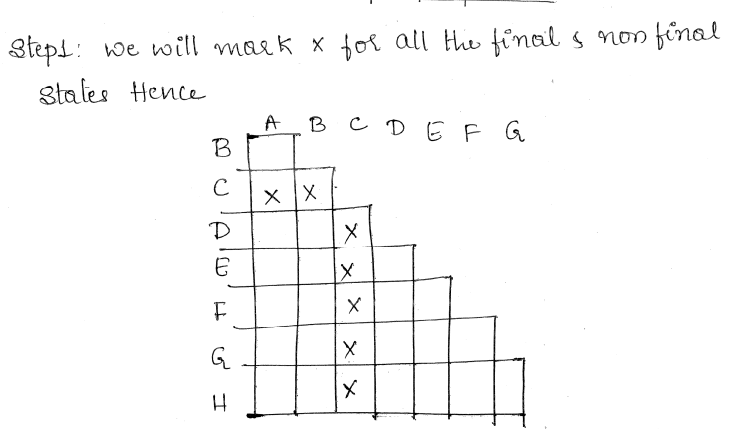 Step1: we will mark x for all the final & non final
States Hence
A B C D E F G
B
C X X
D X
E X
F X
G X
H X